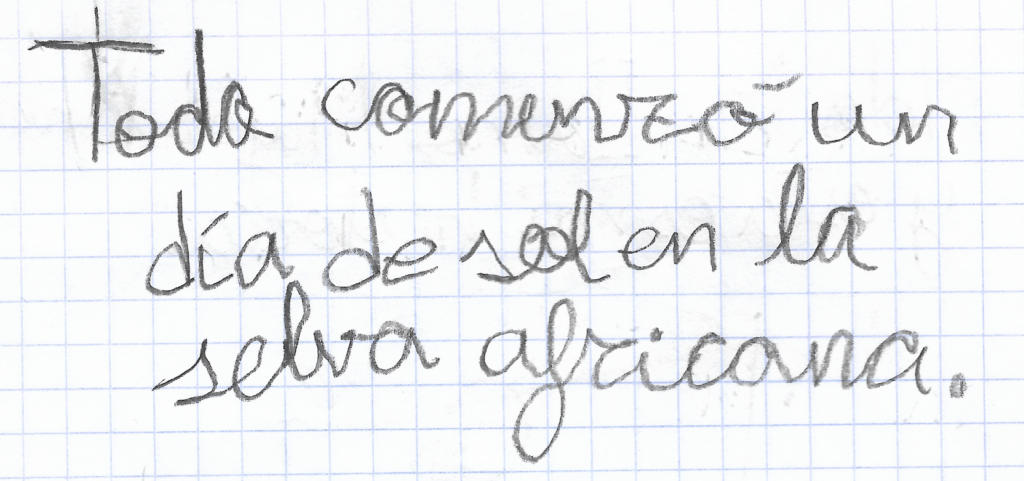 Todo comenzó un
día de sol en la
selva africana.